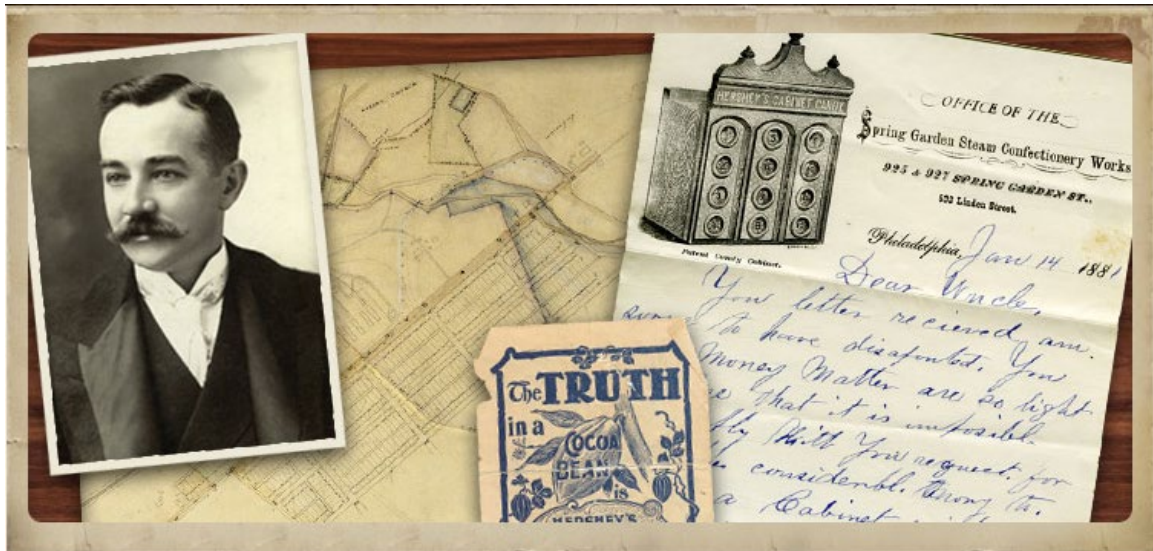 HERSHEY'S CABINET CANDY
Patent Candy Cabinet.
OFFICE OF THE
Spring Garden Steam Confectionery Works
925 & 927 SPRING GARDEN ST.,
Linden Street.
Philadelphia, Jan 14 1881
Dear Uncle,
Your letter recieved, am.
to have disaponted. You
Money Matter are so tight
that it is imposible.
Your request for
considerbl. Owing to.
a Cabinet
The TRUTH
in a
COCOA
BEAN
IS
HERSHEY'S